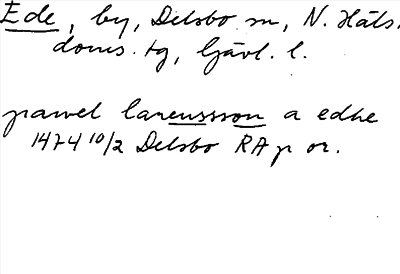 Ede, by, Delsbo sn, N. Häls.
doms. tg, Gävl. l.
pawel larensson a edhe
1474 10/2 Delsbo RA p or.